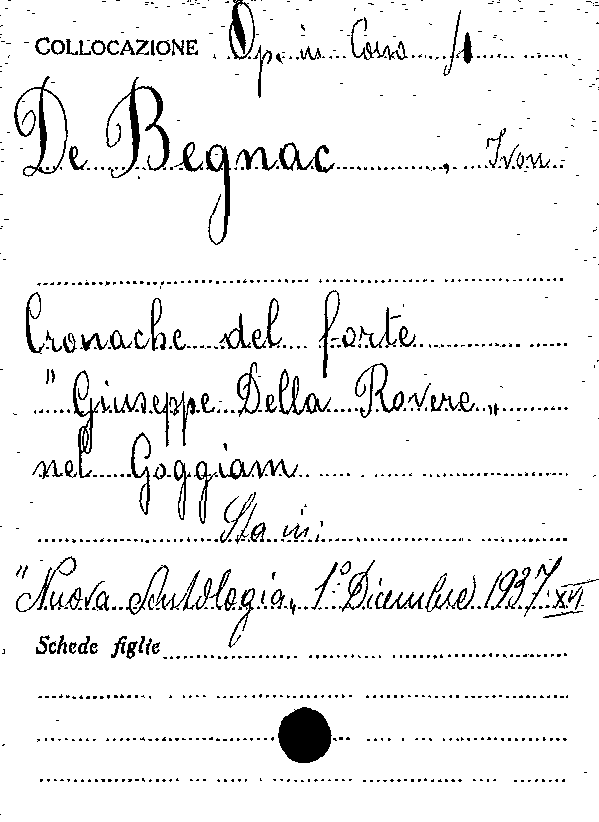 COLLOCAZIONE Op. in Corso /1
De Begnac, Ivon
Cronache del forte
"Giuseppe Della Rovere„
nel Goggiam
Sta in:
"Nuova Antologia„ 1° Dicembre 1937 XVI
Schede figlie